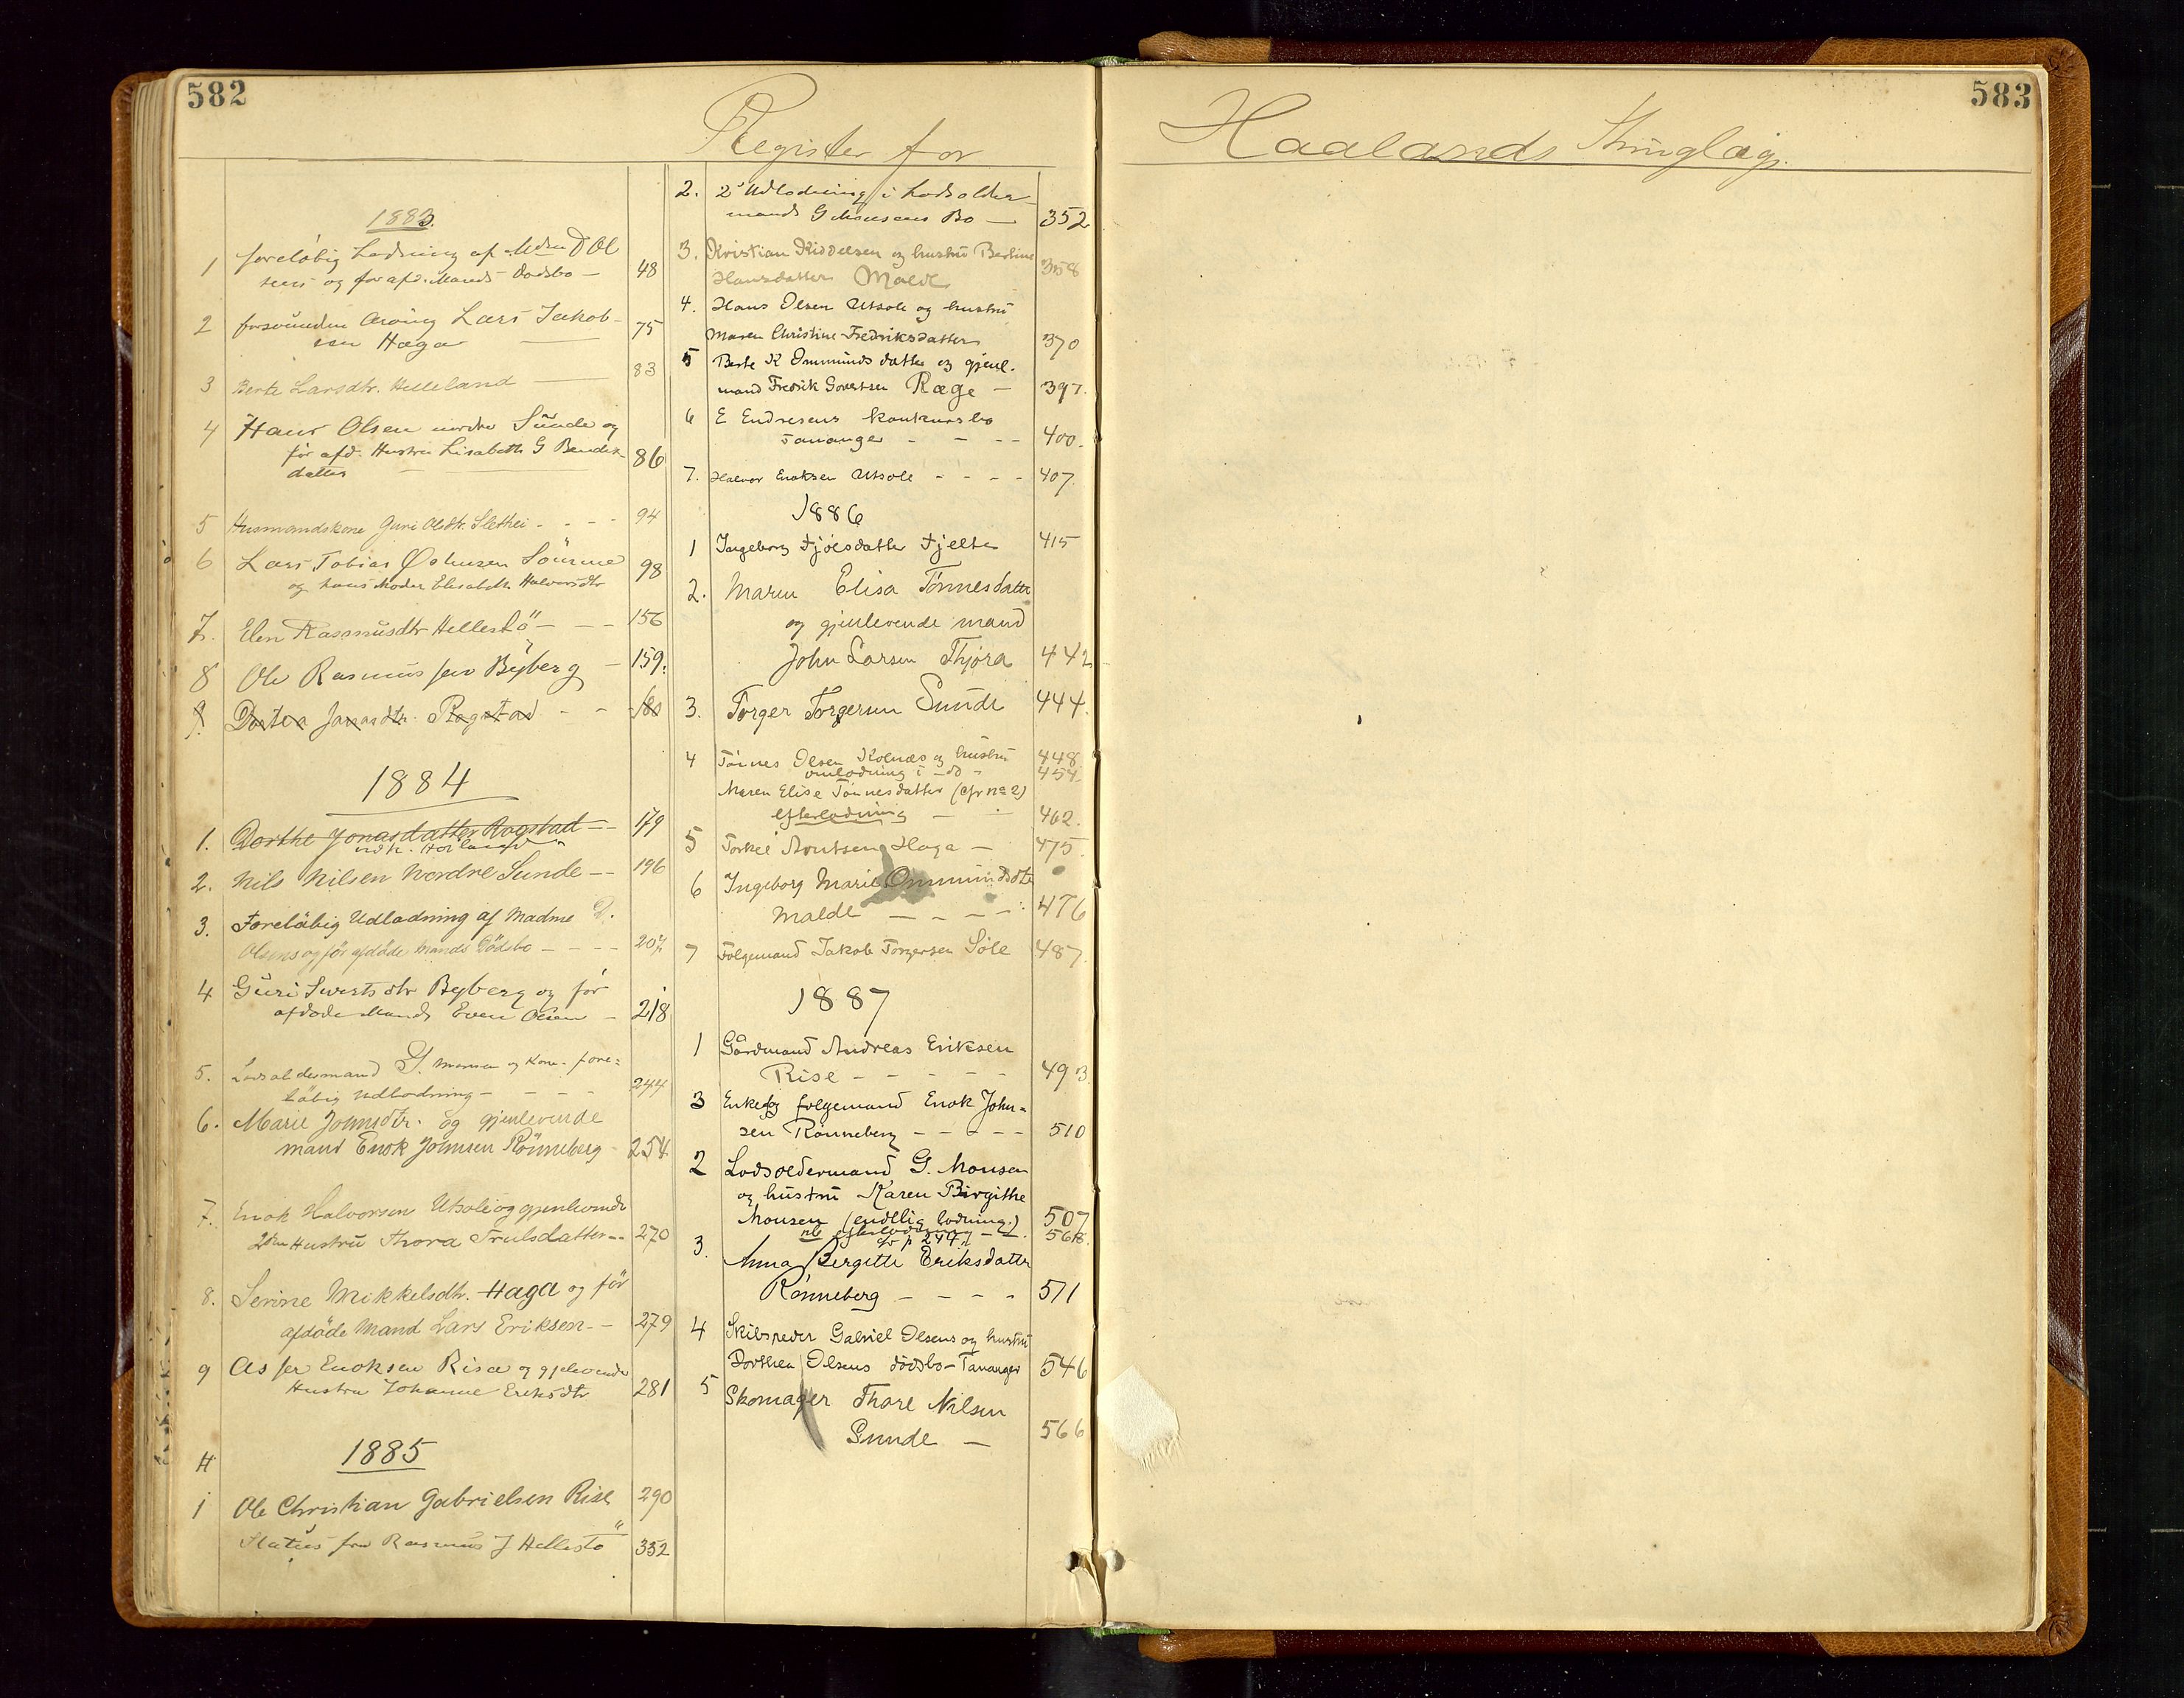 582
Register for
1883.
1 foreløbig Lodning af Mdm D Ol
sens og før afd. Mands Dødsbo — 48
2 forsvunden Arving Lars Jakob-
sen Haga — 75
3 Berte Larsdtr. Helleland — 83
4 Hans Olsen nordre Sunde og
før afd. Hustru Lisabeth G Bendik-
datter — 86
5 Husmandskone Guri Olsdtr. Slethei - - - - 94
6 Lars Tobias Sömme
og hans Moder Elisabeth Halvorsdtr 98
7. Elen Rasmusdtr Hellestö - - - 156
8 Ole Rasmussen Byberg — 159.
9. Dortea Jonasdtr. Rogstad - - 180
1884
1. Dorthe Jonasdatter Rogstad - - 179
2. Nils Nilsen Nordre Sunde - - 196
3. Foreløbig Udlodning af Madme D.
Olsens og før afdøde Mands Dødsbo - - - - 207.
4 Guri Sivertsdtr Byberg og før
afdøde Mands Even Olsen — 218
5. Lodsoldermand G. Monsen og Kone. fore-
løbig Udlodning - - - - 244
6. Marie Johnsdtr. og gjenlevende
mand Enok Johnsen Rönneberg - 254
7. Enok Halvorsen Utsole og gjenlevende
2den Hustru Thora Trulsdatter - - 270
8. Serine Mikkelsdtr. Haga og før
afdøde Mand Lars Eriksen - - 279
9 Asser Enoksen Risa og gjenlevende
Hustru Johanne Eriksdtr 281
1885
1 Ole Christian Gabrielsen Rise 290
Status fra Rasmus J Hellestö 332
2. 2. Udlodning i Lodsolder-
mands G Monsens Bo — 352
3. Kristian Kiddelsen og hustru Bertine
Hansdatter Malde 358
4. Hans Olsen Utsole og hustru
Maren Christine Fredriksdatter 370
5 Berte K Ommundsdatter og gjenl.
mand Fredrik Govertsen Ræge — 397.
6 E Endresens konkursbo
Tananger - - - - 400.
7. Halvor Enoksen Utsole - - - - 407.
1886
1 Ingeborg Fjelsdatter Tjelte 415
2. Maren Elisa Tønnesdatter
og gjenlevende mand
John Larsen Thjora 442
3. Torger Torgersen Sunde 444.
4 Tönnes Olsen Kolnes og hustru 448.
omlodning i - do - 454.
Maren Elise Tönnesdatter (cfr no 2)
efterlodning — - 462.
5 Torkel Aontsen Haga — 475.
6 Ingeborg Marie Ommundsdtr
Malde — - - - - 476
7 Følgemand Jakob Torgersen Söle 487.
1887
1 Gårdmand Andreas Eriksen
Rise - - - - - 493
3 Enke og følgemand Enok John-
sen Rönneberg - - - - - 510
2 Lodsoldermand G. Monsen
og hustru Karen Birgithe
Monsen (endelig lodning.) 507
efterlodning - - 568.
cfr p 244
3. Anna Bergitte Eriksdatter
Rönneberg - - - - 511
4 Skibsreder Gabriel Olsens og hustru
Dorthea Olsens dödsbo - Tananger 546
5 Skomager Thore Nilsen
Sunde — 566
583
Haalands Thinglag.